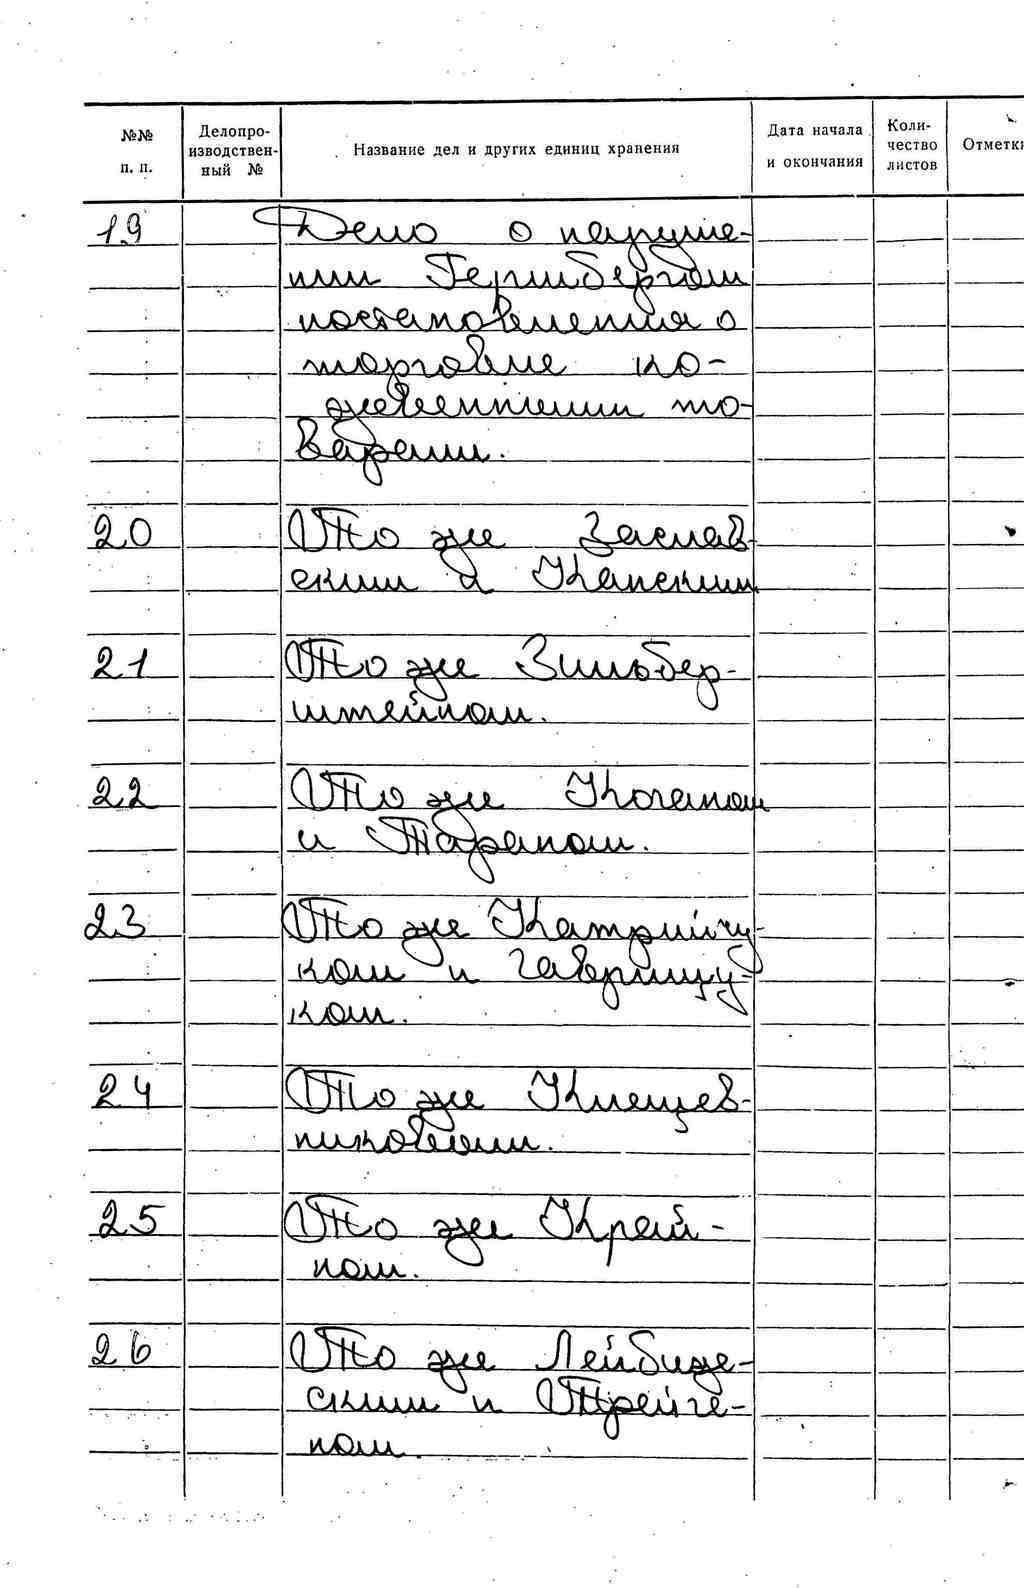 №№ п. п.
Делопро-
изводствен-
ный №
Название дел и других единиц хранения
Дата начала
и окончания
Коли-
чество
листов
Отметки
19 Дело о наруше-
нии
постановления о
торговле ко-
жевенными то-
варами.
20 То же Заслав-
ским и Канским
21 То же Зильбер-
штейном.
22 То же Коганом
и Тараном.
23 То же Катрийчу-
ком и Гаврищу-
ком.
24 То же Клещев-
никовым.
25 То же Крей-
ном.
26 То же
ским и
ном.